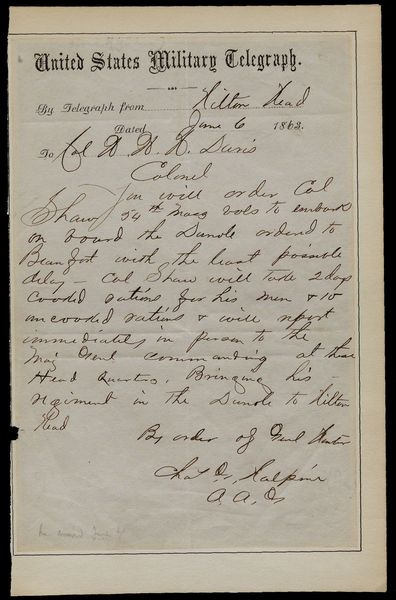 United States Military Telegraph.
By Telegraph from Hilton Head
Dated June 6 1863.
To Col W. W. H. Davis
Colonel
You will order Col
Shaw 54th Mass Vols to embark
on board the ordered to
Beaufort with the least possible
delay – Col Shaw will take 2 days
cooked rations for his men & 10
uncooked rations & will report
immediately in person to the
Maj Genl commanding at these
Head Quarters. Bringing his
regiment in the to Hilton
Head
By order of Genl Hunter
Chas G. Halpine
A. A. G